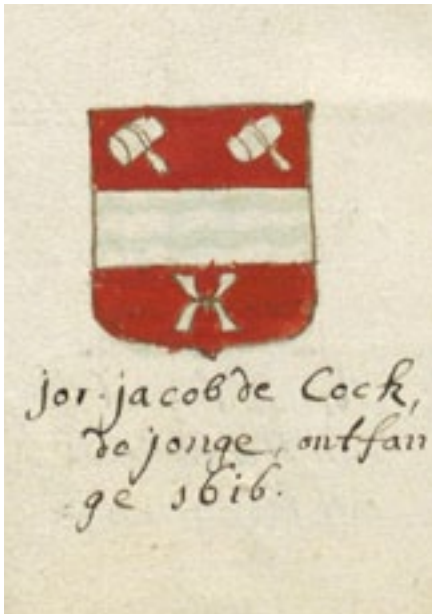 jor. jacob de Cock,
de jonge, ontfan
ge 1616.